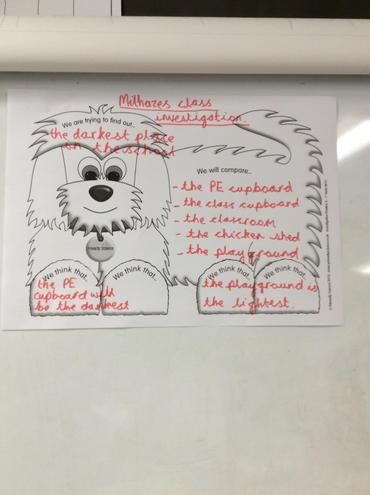 Milhazes class
investigation.
We are trying to find out..
the darkest place
in the school
We will compare..
- the PE cupboard
- the class cupboard
- the classroom
- the chicken shed
- the playground
We think that..
the PE
cupboard will
be the darkest
We think that..
We think that..
We think that..
the playground is
the lightest.